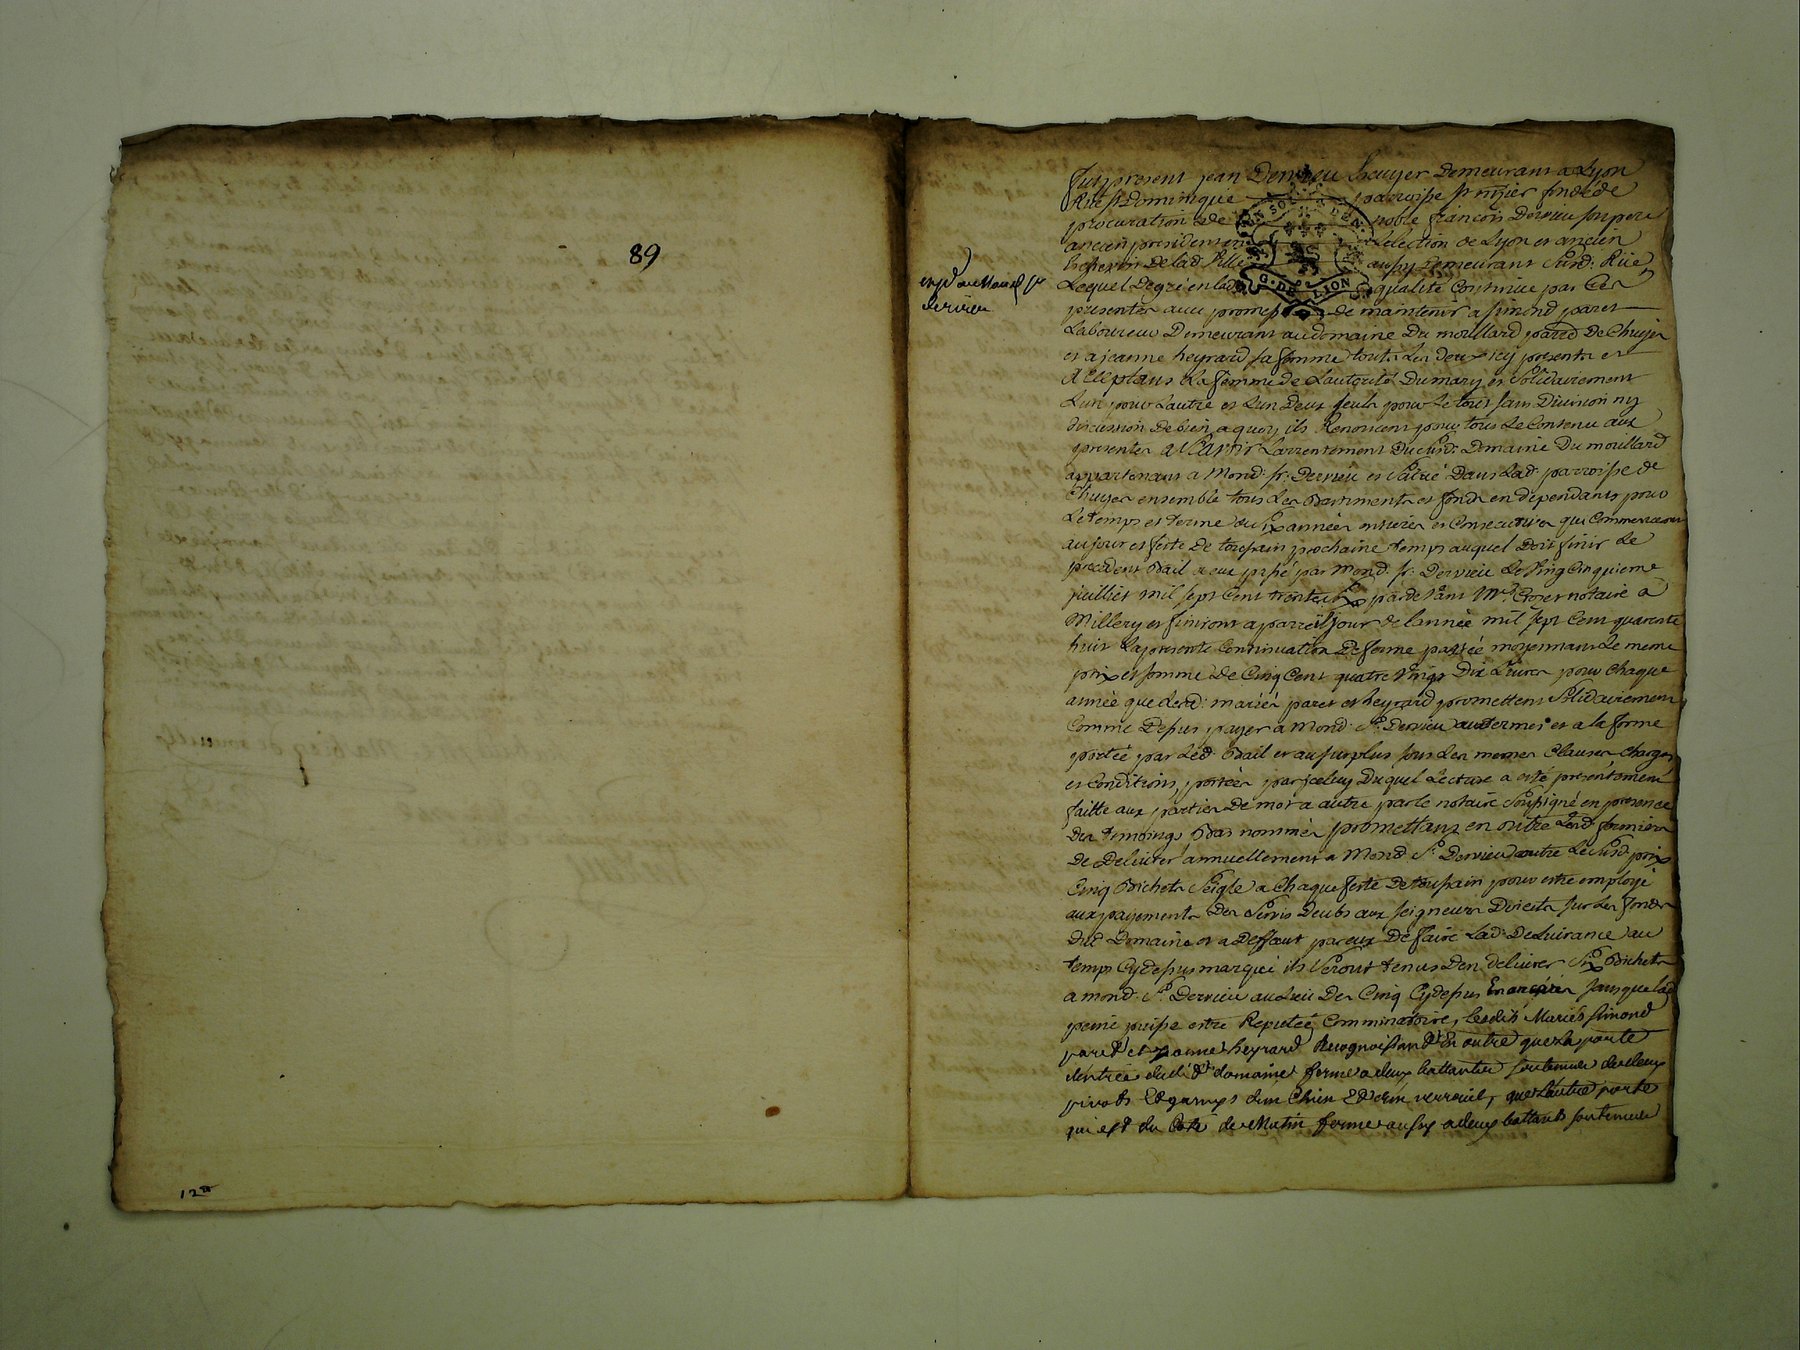 89
12
expd au Mond Sr
dervieu
UN SOL
G. DE LION
Fut present jean Dervieu Escuyer Demeurant a Lyon
Rue St Dominique parroisse St nizier fondé de
procuration de noble françois Dervieu son pere
ancien president en Lelection de Lyon et ancien
Eschevin de lad. Ville aussy demeurant Susd. Rüe
Lequel Degré en lad. qualité Continue par Ces
presentes avec promesse de maintenir a simond paret
Laboureur Demeurant au domaine Du moullard parrd De Chuyer
et a jeanne heyrard sa femme touts Les deux icy presents et
acceptans La femme de Lautorité Du mary et Solidairement
Lun pour Lautre et Lun Deux seuls pour Le tout sans Division ny
discussion de bien a quoy ils Renoncent pour tous Le Contenu aux
presentes a Scavoir Larrentement Du susd. Domaine Du moullard
appartenans a Mond. sr. Dervieu et Scitué Dans Lad. parroisse de
Chuyer ensemble tous Les Bastiments et fonds en dependants pour
Le temps et terme de six années entieres et Consecutives qui Commenceront
au jour et feste De toussain prochaine temps auquel doit finir Le
precedent Bail a eux passé par Mond. sr. Dervieu Le Vingt Cinquieme
juilliet mil sept Cent trente six pardevant Me Crozet notaire a
Millery et finiront a pareil jour de Lannée mil sept Cent quarente
huit La presente Continuation De ferme passée moyennant Le meme
prix et somme De Cinq Cent quatre Vingt Dix Livres pour Chaque
année que Lesd. mariés paret et heyrard promettent Solidairement
Comme Dessus payer a Mond. Sr. Dervieu aux termes et a la forme
portée par Led. Bail et au surplus sous Les memes Clauses, Charges
et Conditions portées par jceluy Duquel Lecture a esté presentement
faitte aux parties De mot a autre par le notaire soussigné en presence
Des temoins Bas nommés promettans en outre Lesd. fermiers
de Delivrer annuellement a Mond. Sr. Dervieu outre Le Susd. prix
Cinq Bichets Seigle a Chaque feste De toussain pour estre employé
aux payements Des Servis Deubs aux seigneurs Directs sur Les fonds
dud. Domaine et a Deffaut par eux De faire Lad. Delivrance au
temps Cydessus marqué ils Seront tenus Den delivrer Six Bichets
a mond. Sr. Dervieu au Lieu Des Cinq Cydessus sans que Lad.
peine puisse estre Reputée Comminatoire, lesdits Mariés simond
paret et jeanne heyrard Recognoissant En outre que la porte
dentrée dudit domaine ferme a deux battants soutenue de deux
pivots Et garnys dun Et dun verrouil, que Lautre porte
qui est du Coté de Matin ferme aussy a deux battants soutenue